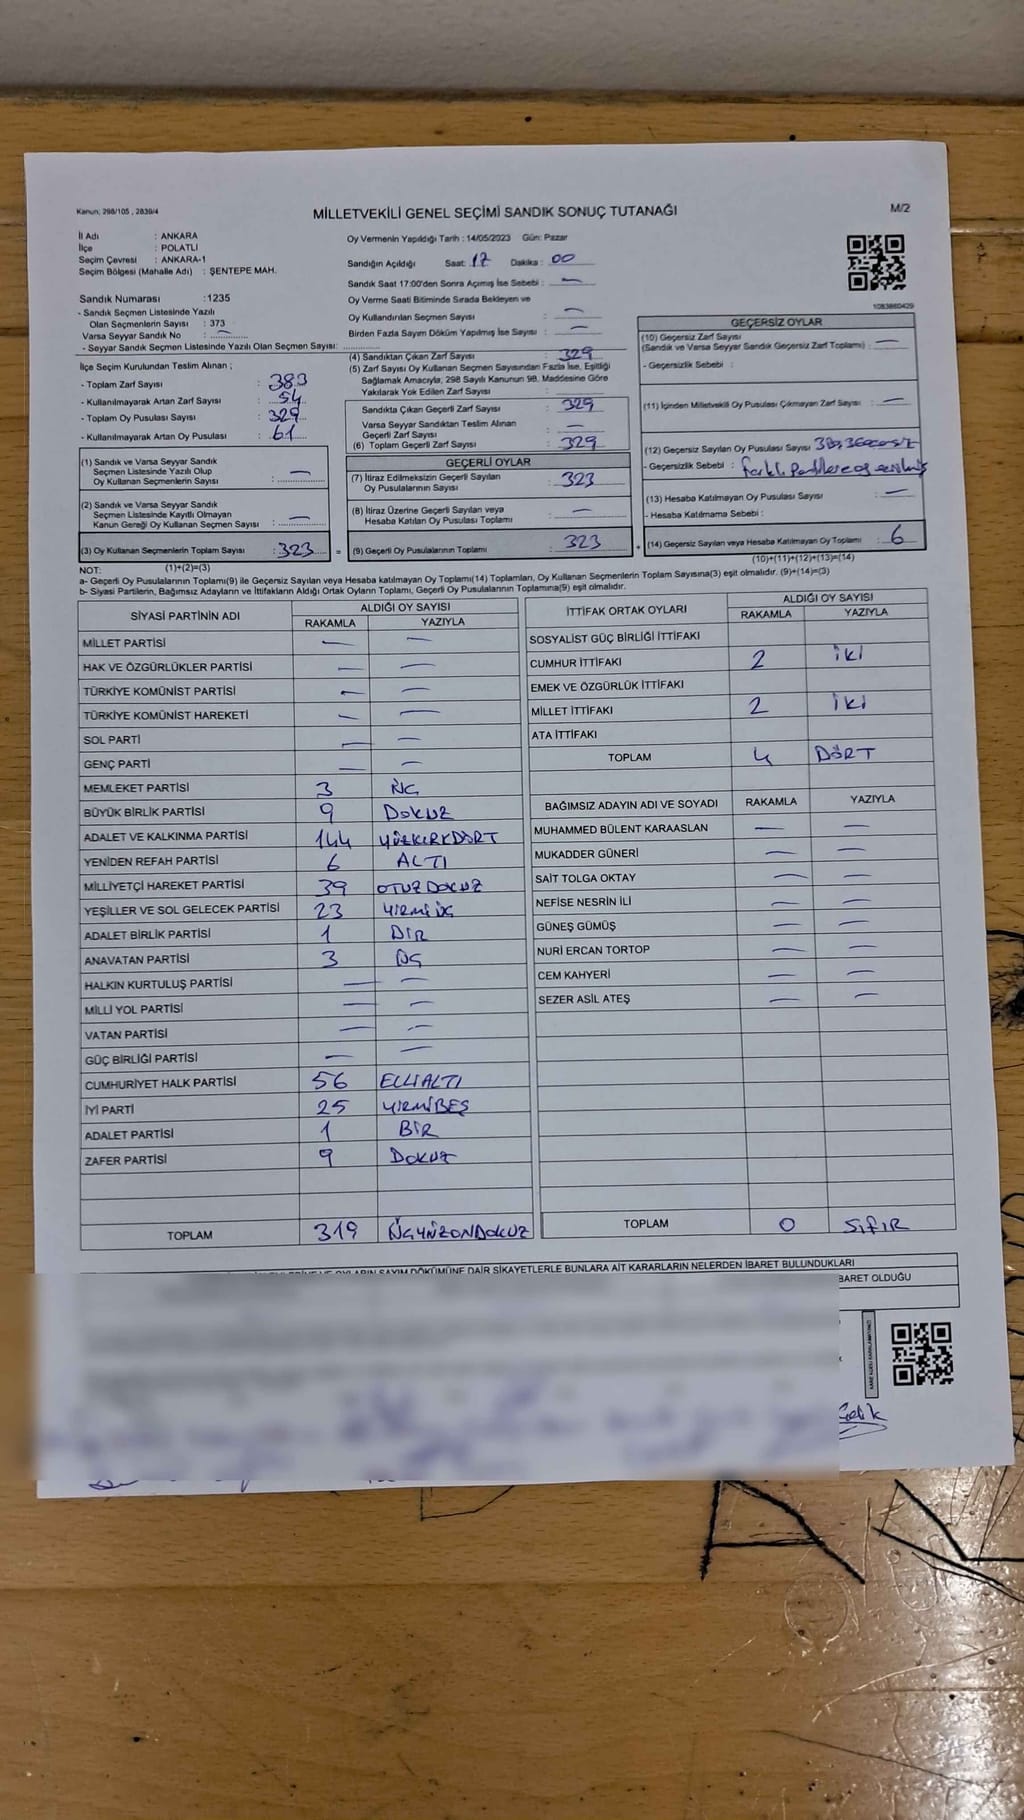 Kanun; 298/105 , 2839/4
MİLLETVEKİLİ GENEL SEÇİMİ SANDIK SONUÇ TUTANAĞI
M/2
İl Adı : ANKARA
İlçe : POLATLI
Seçim Çevresi : ANKARA-1
Seçim Bölgesi (Mahalle Adı) : ŞENTEPE MAH.
Sandık Numarası :1235
- Sandık Seçmen Listesinde Yazılı
Olan Seçmenlerin Sayısı : 373
Varsa Seyyar Sandık No :
- Seyyar Sandık Seçmen Listesinde Yazılı Olan Seçmen Sayısı:
Oy Vermenin Yapıldığı Tarih : 14/05/2023 Gün: Pazar
Sandığın Açıldığı Saat: 17 Dakika : 00
Sandık Saat 17:00'den Sonra Açımış İse Sebebi : —
Oy Verme Saati Bitiminde Sırada Bekleyen ve
Oy Kullandırılan Seçmen Sayısı : —
Birden Fazla Sayım Döküm Yapılmış İse Sayısı : —
1083860429
İlçe Seçim Kurulundan Teslim Alınan ;
- Toplam Zarf Sayısı : 383
- Kullanılmayarak Artan Zarf Sayısı : 54
- Toplam Oy Pusulası Sayısı : 329
- Kullanılmayarak Artan Oy Pusulası : 61
(1) Sandık ve Varsa Seyyar Sandık
Seçmen Listesinde Yazılı Olup
Oy Kullanan Seçmenlerin Sayısı : —
(2) Sandık ve Varsa Seyyar Sandık
Seçmen Listesinde Kayıtlı Olmayan
Kanun Gereği Oy Kullanan Seçmen Sayısı : —
(3) Oy Kullanan Seçmenlerin Toplam Sayısı : 323 =
(1)+(2)=(3)
(4) Sandıktan Çıkan Zarf Sayısı : 329
(5) Zarf Sayısı Oy Kullanan Seçmen Sayısından Fazla İse, Eşitliği
Sağlamak Amacıyla, 298 Sayılı Kanunun 98. Maddesine Göre
Yakılarak Yok Edilen Zarf Sayısı :
Sandıkta Çıkan Geçerli Zarf Sayısı : 329
Varsa Seyyar Sandıktan Teslim Alınan
Geçerli Zarf Sayısı : —
(6) Toplam Geçerli Zarf Sayısı : 329
GEÇERLİ OYLAR
(7) İtiraz Edilmeksizin Geçerli Sayılan
Oy Pusulalarının Sayısı : 323
(8) İtiraz Üzerine Geçerli Sayılan veya
Hesaba Katılan Oy Pusulası Toplamı : —
(9) Geçerli Oy Pusulalarının Toplamı : 323 +
GEÇERSİZ OYLAR
(10) Geçersiz Zarf Sayısı
(Sandık ve Varsa Seyyar Sandık Geçersiz Zarf Toplamı) : —
- Geçersizlik Sebebi :
(11) İçinden Milletvekili Oy Pusulası Çıkmayan Zarf Sayısı : —
(12) Geçersiz Sayılan Oy Pusulası Sayısı
- Geçersizlik Sebebi :
(13) Hesaba Katılmayan Oy Pusulası Sayısı : —
- Hesaba Katılmama Sebebi :
(14) Geçersiz Sayılan veya Hesaba Katılmayan Oy Toplamı : 6
(10)+(11)+(12)+(13)=(14)
NOT:
a- Geçerli Oy Pusulalarının Toplamı(9) ile Geçersiz Sayılan veya Hesaba katılmayan Oy Toplamı(14) Toplamları, Oy Kullanan Seçmenlerin Toplam Sayısına(3) eşit olmalıdır. (9)+(14)=(3)
b- Siyasi Partilerin, Bağımsız Adayların ve İttifakların Aldığı Ortak Oyların Toplamı, Geçerli Oy Pusulalarının Toplamına(9) eşit olmalıdır.
SİYASİ PARTİNİN ADI ALDIĞI OY SAYISI
RAKAMLA YAZIYLA
MİLLET PARTİSİ — —
HAK VE ÖZGÜRLÜKLER PARTİSİ — —
TÜRKİYE KOMÜNİST PARTİSİ — —
TÜRKİYE KOMÜNİST HAREKETİ — —
SOL PARTİ — —
GENÇ PARTİ — —
MEMLEKET PARTİSİ 3 ÜÇ
BÜYÜK BİRLİK PARTİSİ 9 DOKUZ
ADALET VE KALKINMA PARTİSİ 144 YÜZKIRKDÖRT
YENİDEN REFAH PARTİSİ 6 ALTI
MİLLİYETÇİ HAREKET PARTİSİ 39 OTUZDOKUZ
YEŞİLLER VE SOL GELECEK PARTİSİ 23 YİRMİÜÇ
ADALET BİRLİK PARTİSİ 1 BİR
ANAVATAN PARTİSİ 3 ÜÇ
HALKIN KURTULUŞ PARTİSİ — —
MİLLİ YOL PARTİSİ — —
VATAN PARTİSİ — —
GÜÇ BİRLİĞİ PARTİSİ — —
CUMHURİYET HALK PARTİSİ 56 ELLİALTI
İYİ PARTİ 25 YİRMİBEŞ
ADALET PARTİSİ 1 BİR
ZAFER PARTİSİ 9 DOKUZ
TOPLAM 319 ÜÇYÜZONDOKUZ
İTTİFAK ORTAK OYLARI ALDIĞI OY SAYISI
RAKAMLA YAZIYLA
SOSYALİST GÜÇ BİRLİĞİ İTTİFAKI
CUMHUR İTTİFAKI 2 İKİ
EMEK VE ÖZGÜRLÜK İTTİFAKI
MİLLET İTTİFAKI 2 İKİ
ATA İTTİFAKI
TOPLAM 4 DÖRT
BAĞIMSIZ ADAYIN ADI VE SOYADI RAKAMLA YAZIYLA
MUHAMMED BÜLENT KARAASLAN — —
MUKADDER GÜNERİ — —
SAİT TOLGA OKTAY — —
NEFİSE NESRİN İLİ — —
GÜNEŞ GÜMÜŞ — —
NURİ ERCAN TORTOP — —
CEM KAHYERİ — —
SEZER ASİL ATEŞ — —
TOPLAM 0 SIFIR
OYLARIN SAYIM DÖKÜMÜNE DAİR ŞİKAYETLERLE BUNLARA AİT KARARLARIN NELERDEN İBARET BULUNDUKLARI
BARET OLDUĞU